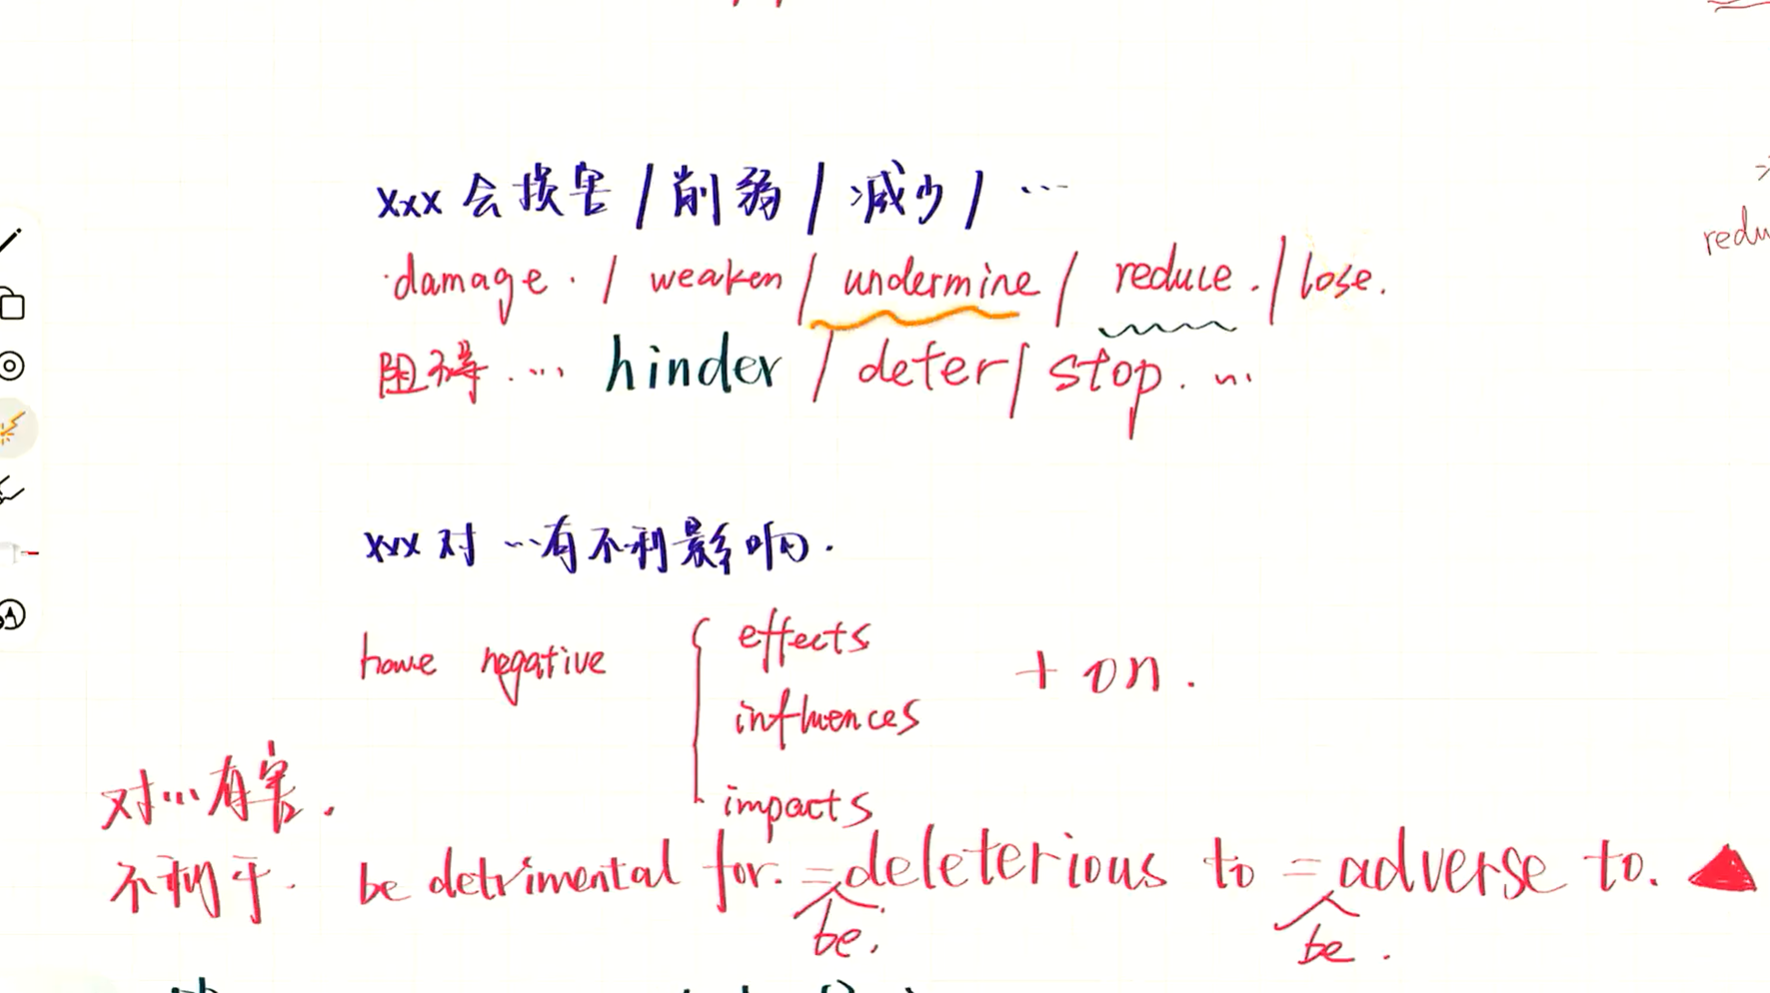 xxx 会损害 / 削弱 / 减少 / …
damage. / weaken / undermine / reduce. / lose.
阻碍 … hinder / deter / stop. …
xxx 对 … 有不利影响.
have negative { effects influences impacts + on.
对…有害.
不利于. be detrimental for. = deleterious to = adverse to.
be. be.
redu